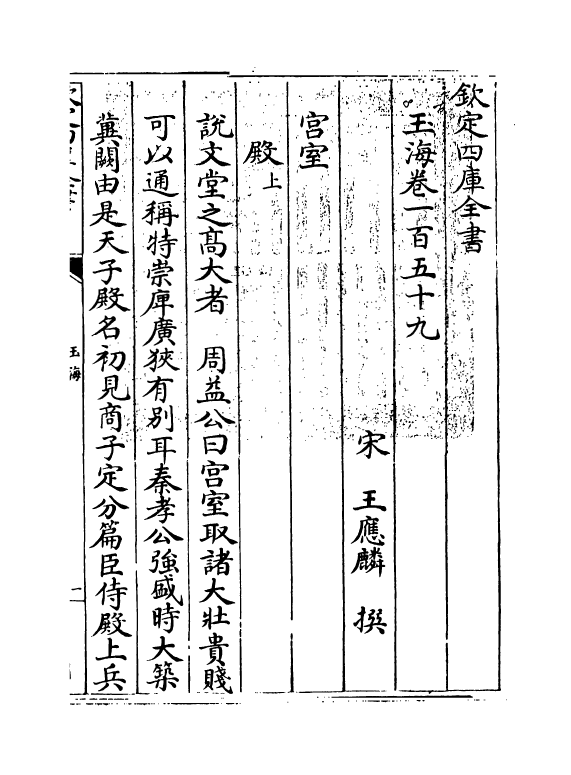 欽定四庫全書
玉海卷一百五十九
宋　王應麟　撰
宮室
殿上
說文堂之髙大者　周益公曰宮室取諸大壯貴賤
可以通稱特崇庳廣狹有别耳秦孝公強盛時大築
冀闕由是天子殿名初見商子定分篇臣侍殿上兵
玉海